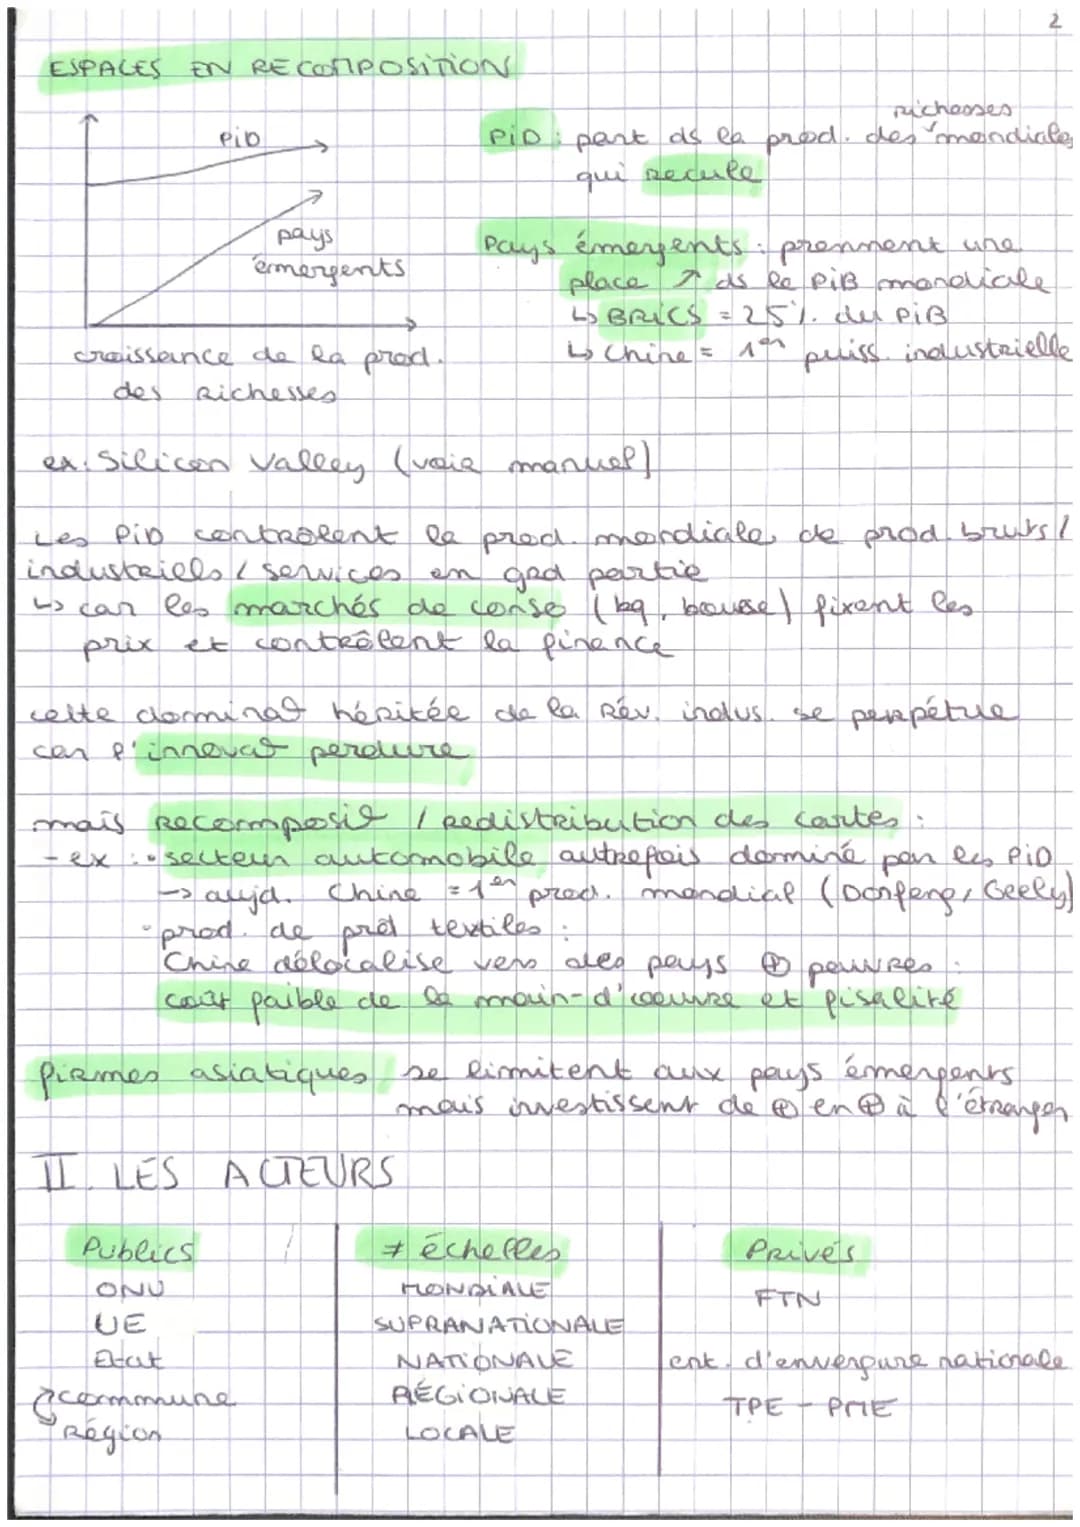 2
ESPACES EN RECOMPOSITION
PiD
pays
émergents
croissance de la prod.
des richesses
PiD : part ds la prod. des richesses mondiales
qui recule
Pays émergents : prennent une
place ↗ ds le PiB mondiale
↳ BRiCS = 25% du PiB
↳ Chine = 1er puiss. industrielle
ex: Silicon Valley (voir manuel)
Les PiD contrôlent la prod. mondiale de prod. bruts /
industriels / services en grd partie
↳ car les marchés de conso (bq, bourse) fixent les
prix et contrôlent la finance
cette dominat° héritée de la Rév. indus. se perpétue
car l'innovat° perdure
mais recomposit° / redistribution des cartes :
- ex : • secteur automobile autrefois dominé par les PiD
→ aujd. Chine = 1er prod. mondial (Donfeng, Geely)
• prod. de prêt textiles :
Chine délocalise vers des pays ⊕ pauvres :
coût faible de la main-d'oeuvre et fisalité
firmes asiatiques se limitent aux pays émergents
mais investissent de ⊕ en ⊕ à l'étranger
II. LES ACTEURS
Publics
≠ échelles
Privés
ONU
MONDIALE
FTN
UE
SUPRANATIONALE
Etat
NATIONALE
ent. d'envergure nationale
commune
RÉGIONALE
TPE - PME
Région
LOCALE